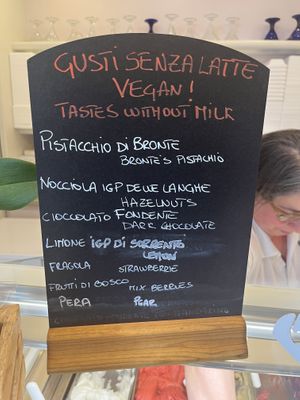 GUSTI SENZA LATTE
VEGAN!
TASTES WITHOUT MILK
PISTACCHIO DI BRONTE
BRONTE'S PISTACHIO
NOCCIOLA IGP DELLE LANGHE
HAZELNUTS
CIOCCOLATO FONDENTE
DARK CHOCOLATE
LIMONE IGP DI SORRENTO
LEMON
FRAGOLA STRAWBERRIE
FRUTTI DI BOSCO MIX BERRIES
PERA PEAR